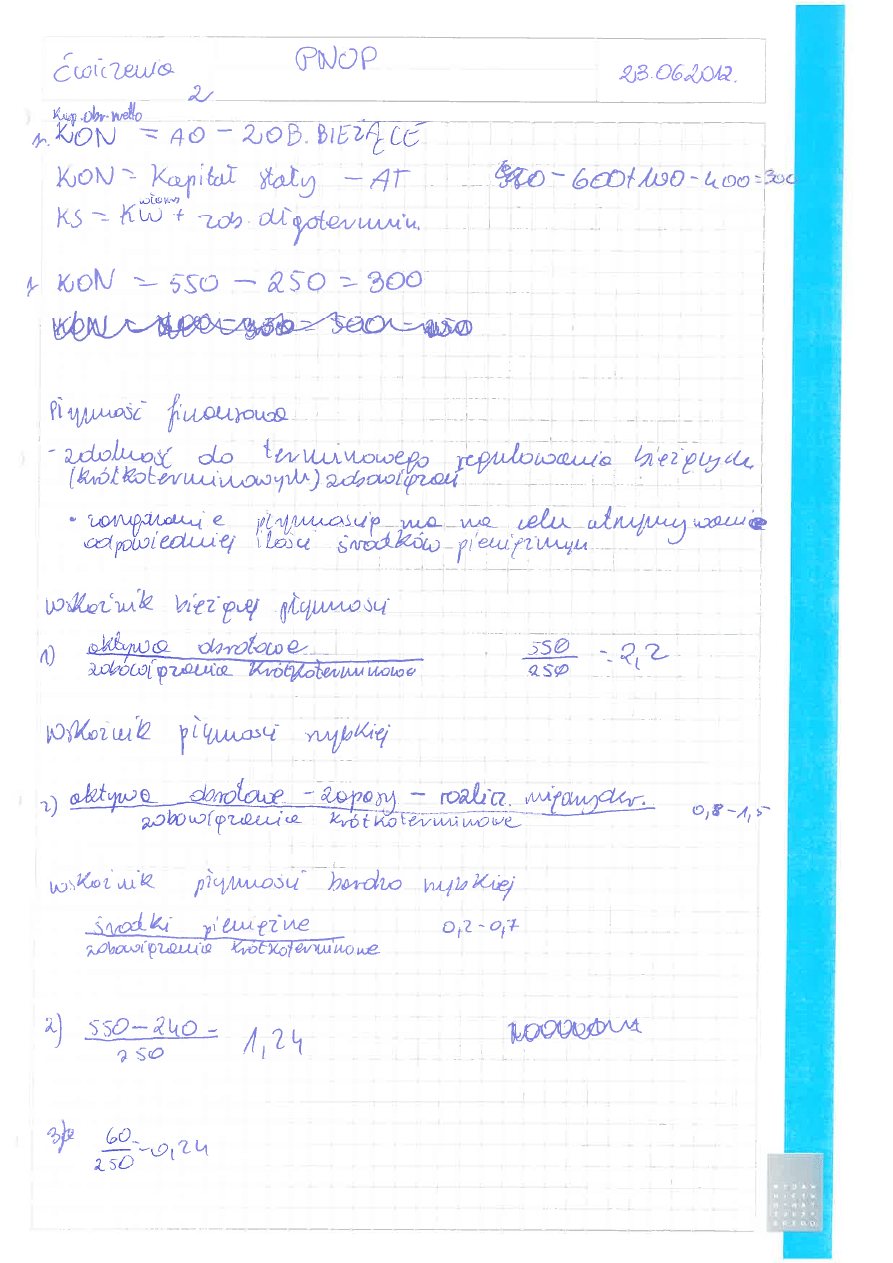 Ćwiczenia PNOP 23.06.2012.
2
Kap. obr. netto
KON = AO - ZOB. BIEŻĄCE
KON = Kapitał stały - AT - 600 + 100 - 400 = 300
własny
KS = KW + zob. długotermin.
1 KON = 550 - 250 = 300
Płynność finansowa
- zdolność do terminowego regulowania bieżących
(krótkoterminowych) zobowiązań
• zarządzanie płynnością ma na celu utrzymywanie
odpowiedniej ilości środków pieniężnych
wskaźnik bieżącej płynności
1) aktywa obrotowe 550 = 2,2
zobowiązania krótkoterminowe 250
Wskaźnik płynności szybkiej
2) aktywa obrotowe - zapasy - rozlicz. międzyokr. 0,8 - 1,5
zobowiązania krótkoterminowe
wskaźnik płynności bardzo szybkiej
środki pieniężne 0,2 - 0,7
zobowiązania krótkoterminowe
2) 550 - 240 = 1,24
250
3) 60 = 0,24
250